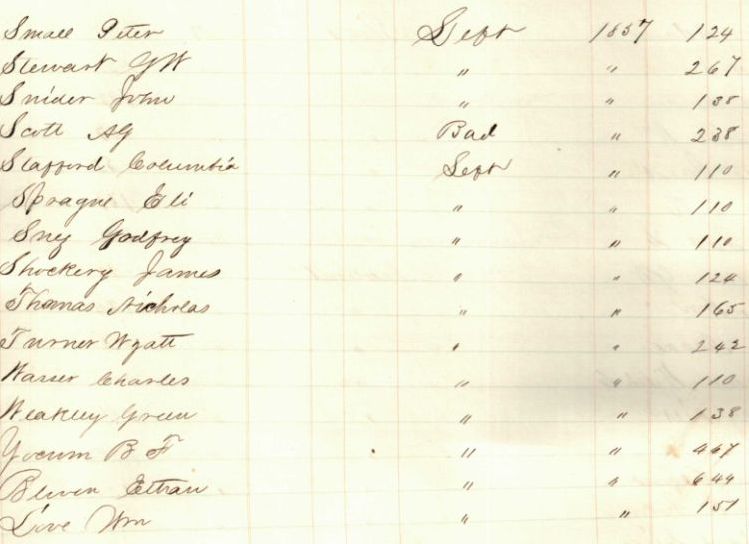 Small Peter Sept 1857 124
Stewart GW " " 267
Snider John " " 138
Scott AG Bad " 238
Stafford Columbia Sept " 110
Sprague Eli " " 110
Sney Godfrey " " 110
Shockery James " " 124
Thomas Nicholas " " 165
Turner Wyatt " " 242
Charles " " 110
Weakley Green " " 138
Yocum B F " " 467
Bliven Ethan " " 644
Love Wm " " 151